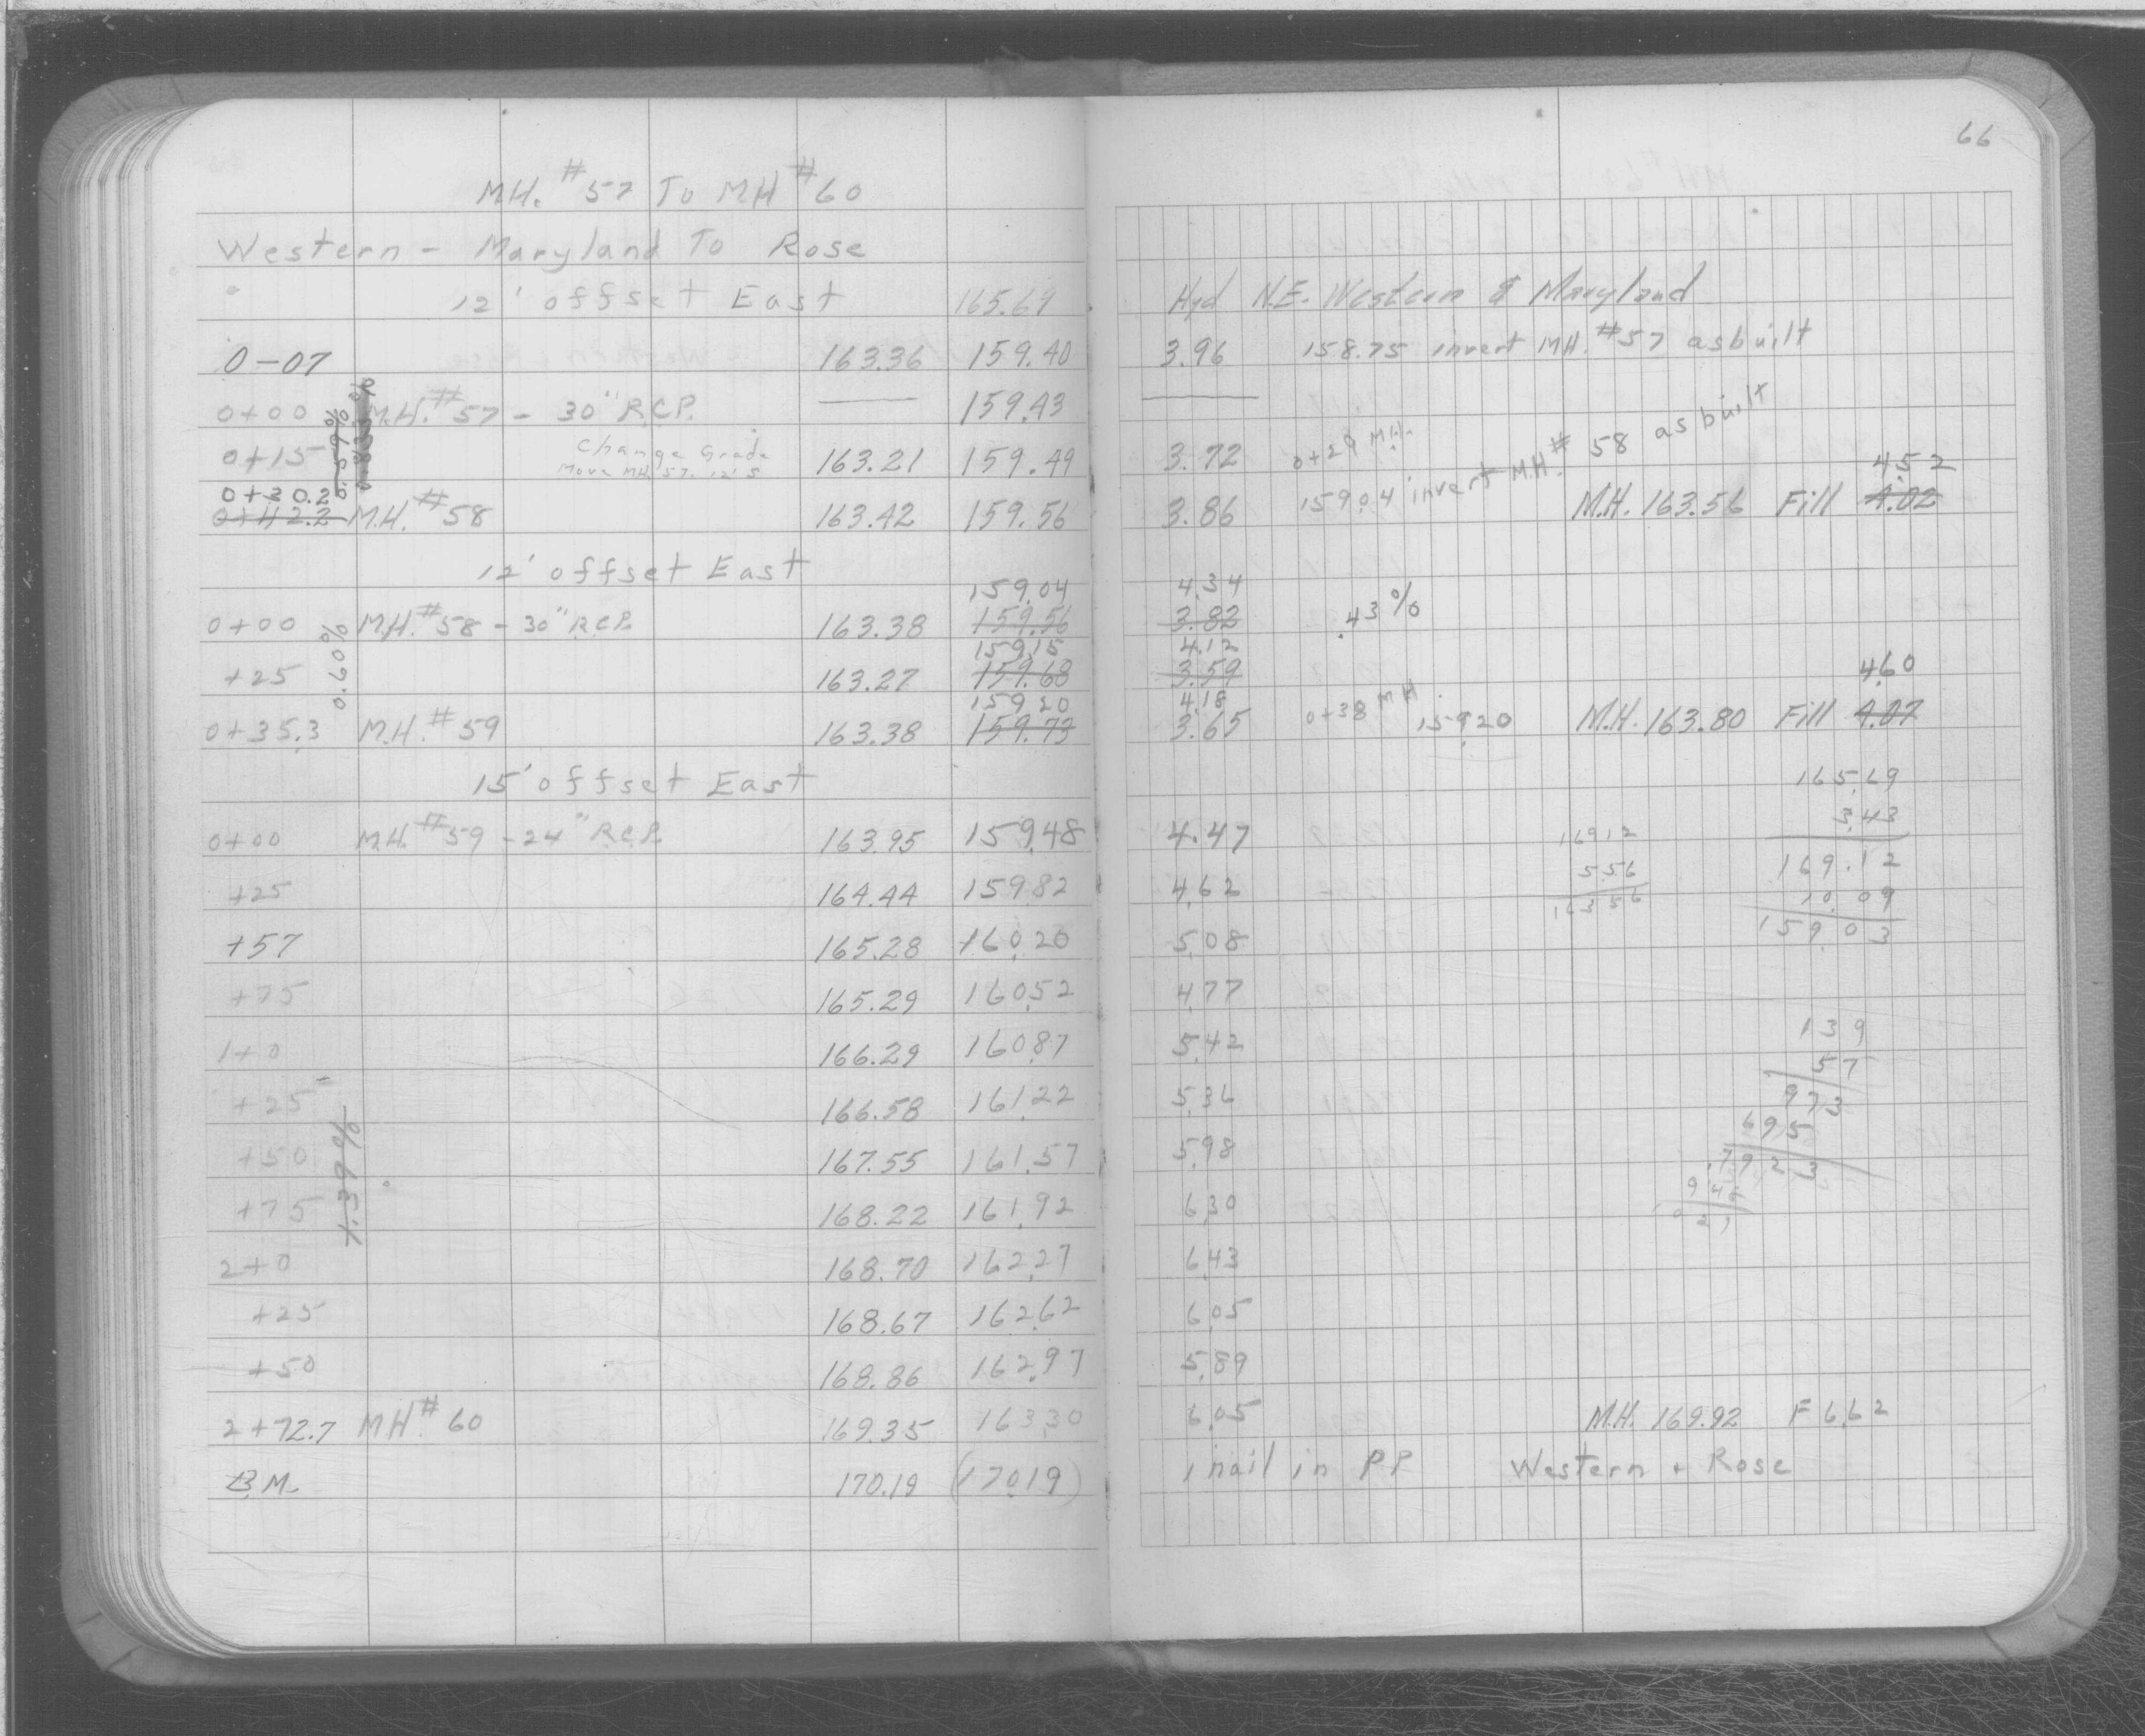 66
MH. #57 To MH #60
Western - Maryland To Rose
12' offset East 165.69 Hyd N.E. Western & Maryland
0-07 163.36 159.40 3.96 158.75 invert MH. #57 asbuilt
0+00 M.H. #57 - 30" R.C.P. 159.43
0.59%
0.833%
0+15 Change Grade 163.21 159.49 3.72 0+29 MH.
Move MH. 57. 12' S
0+30.2 452
0+42.2 M.H. #58 163.42 159.56 3.86 159.04 invert M.H. #58 as built M.H. 163.56 Fill 4.02
12' offset East
159.04 4.34
0+00 M.H. #58 - 30" R.C.P. 163.38 159.56 3.82 .43%
0.60%
159.15 4.12
+25 163.27 159.68 3.59 4.60
159.20 4.18
0+35.3 M.H. #59 163.38 159.73 3.65 0+38 MH 159.20 M.H. 163.80 Fill 4.07
15' offset East 165.69
3.43
0+00 M.H. #59 - 24" R.C.P. 163.95 159.48 4.47 169.12 169.12
+25 164.44 159.82 4.62 5.56 10.09
163.56 159.03
+57 165.28 160.20 5.08
+75 165.29 160.52 4.77
1+0 166.29 160.87 5.42 139
57
+25 166.58 161.22 5.36 973
695
+50 167.55 161.57 5.98 .7923
1.39%
+75 168.22 161.92 6.30
2+0 168.70 162.27 6.43
+25 168.67 162.62 6.05
+50 168.86 162.97 5.89
2+72.7 MH #60 169.35 163.30 6.05 M.H. 169.92 F 6.62
B.M. 170.19 (170.19) 1 nail in PP Western + Rose